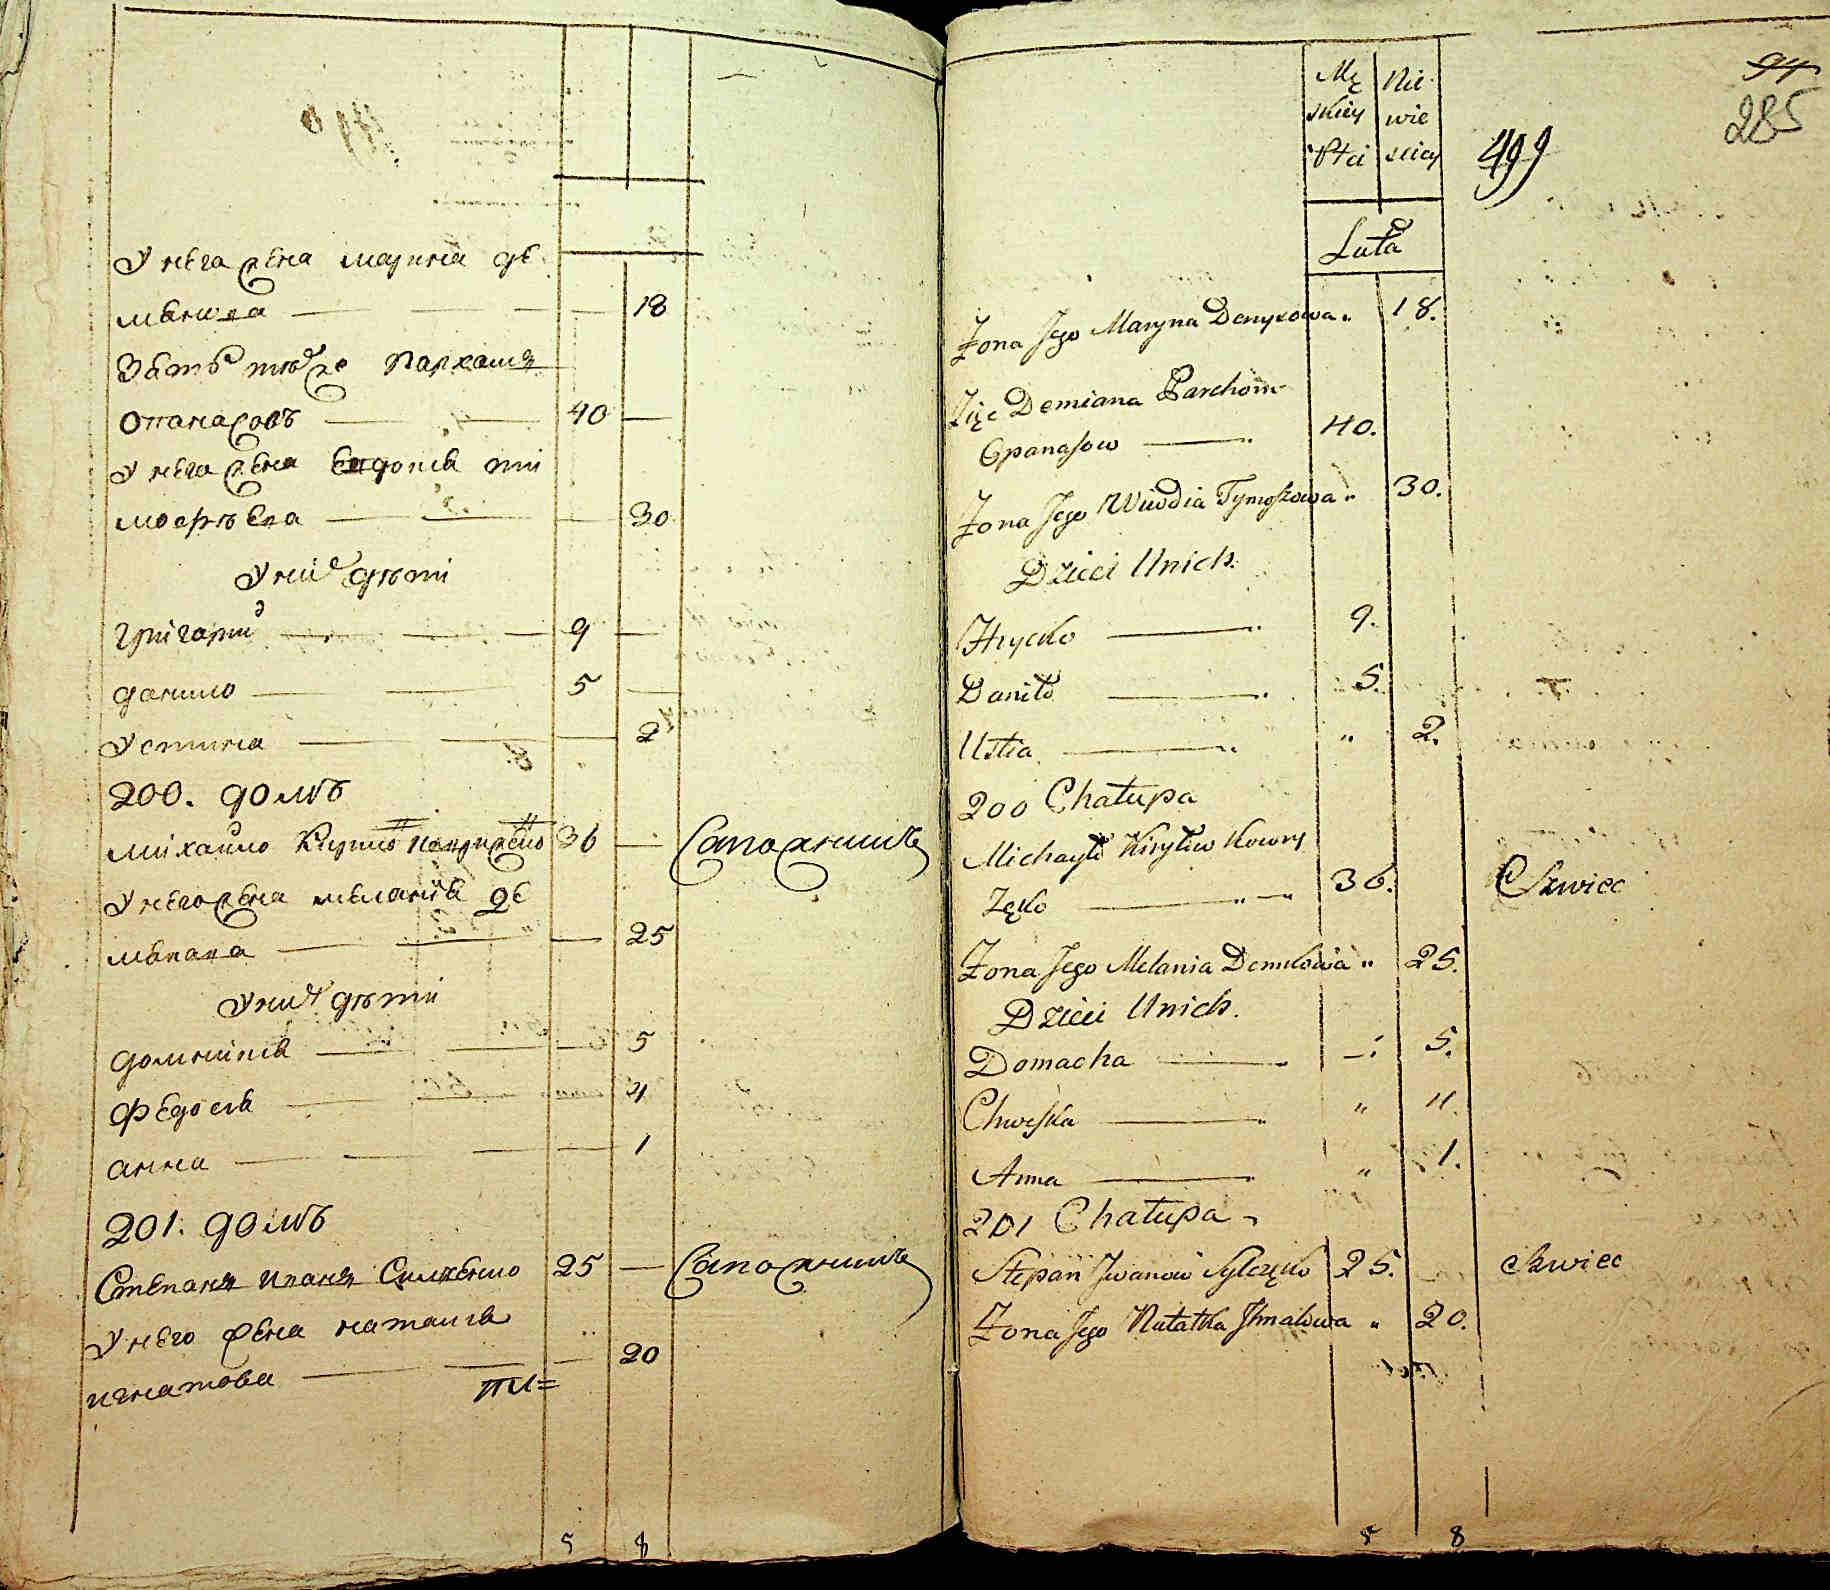 У нега жена марина де
мянова 18
Зять тоже Пархомъ
Опанасовъ 40
У нега жена Евдокия ти
мофѣева 30
У них дѣти
Григорий 9
данило 5
Устина 2
200. домъ
михаило Кирило 36 Сапожникъ
У него жена мелания де
мянова 25
У них дѣти
домникия 5
Федосия 4
анна 1
201. домъ
Степанъ Иванъ 25 Сапожникъ
У него жена наталия
игнатова 20
5 8
Mę Nie
skiey wie
Płci sciey
94
285
499
Lata
Żona Jego Maryna Demyxowa " 18.
Zięc Demiana Parchom
Opanasow 40.
Żona Jego Wiwdia Tymoszowa " 30.
Dzieci Unich.
Hrycko 9.
Daniło 5.
Ustia " 2.
200 Chałupa
Michayło Kiryłow Kowry
Zęko 36. Szwiec
Żona Jego Melania Demkowa " 25.
Dzieci Unich.
Domacha 5.
Chweska " 4.
Anna " 1.
201 Chałupa
Stepan Jwanow Sylczęko 25. Szwiec
Żona Jego Natałka Jhnatowa " 20.
5 8